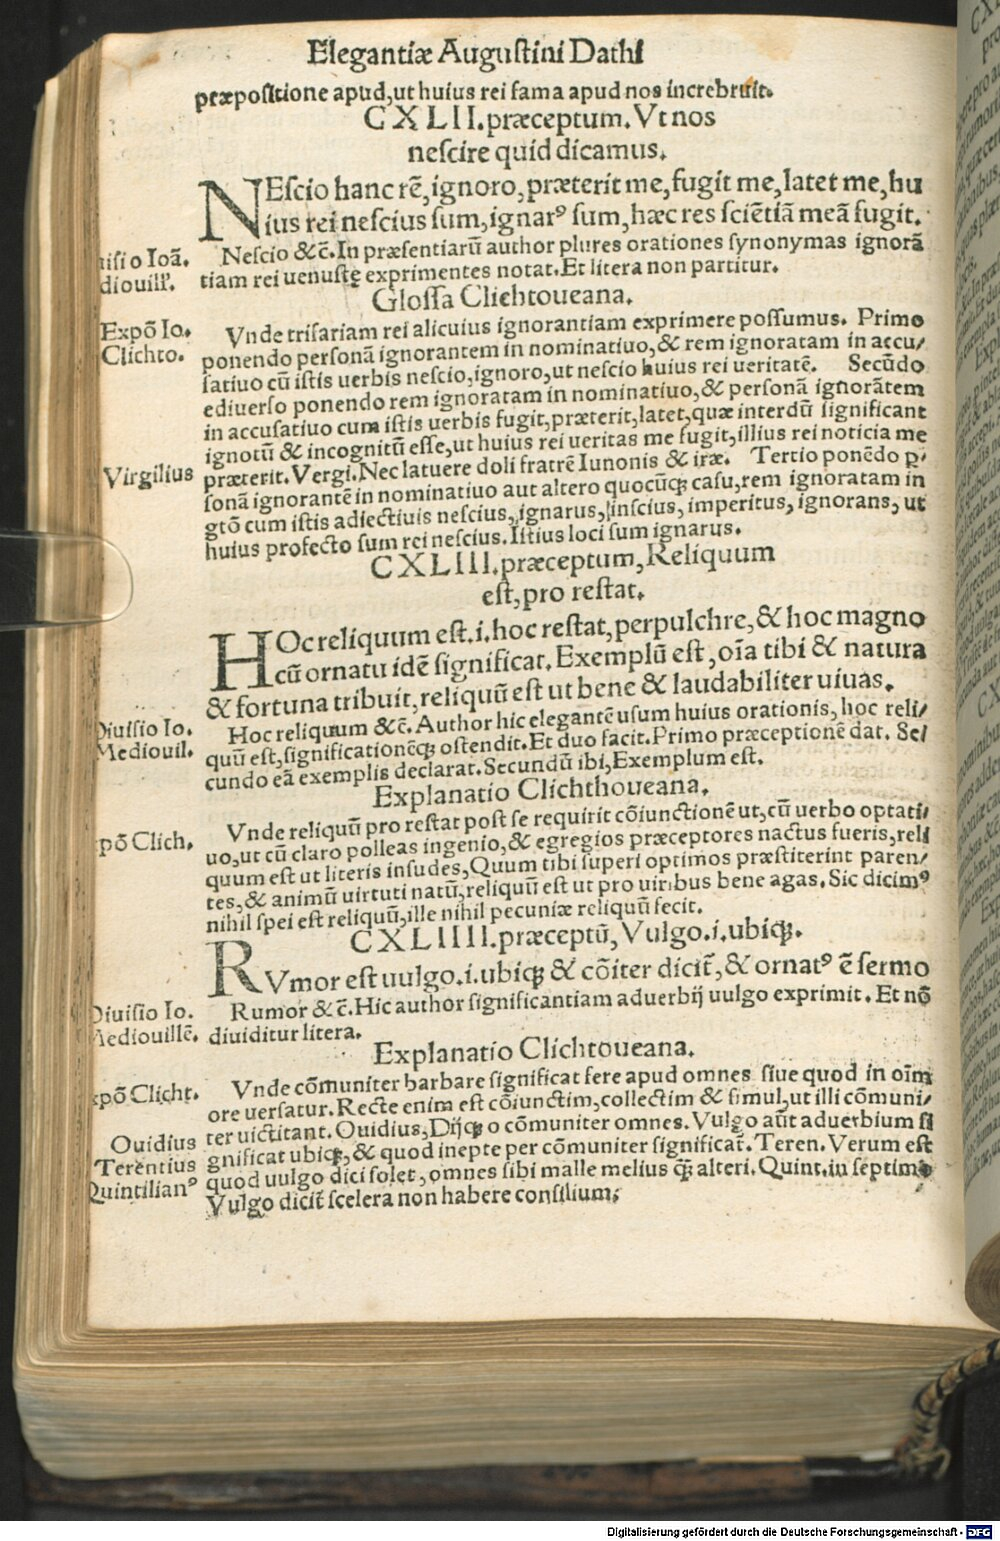 Elegantiæ Augustini Dathi
præpositione apud,ut huius rei fama apud nos increbruit.
CXLII.præceptum.Vt nos
nescire quid dicamus.
NEscio hanc rē,ignoro,præterit me,fugit me,latet me,hu
ius rei nescius sum,ignarꝰ sum,hæc res sciētiā meā fugit.
Nescio &c̄.In præsentiarū author plures orationes synonymas ignorā
tiam rei uenustę exprimentes notat.Et litera non partitur.
uisio Ioā.
diouill'.
Glossa Clichtoueana.
Expō Io.
Clichto.
Vnde trifariam rei alicuius ignorantiam exprimere possumus. Primo
ponendo personā ignorantem in nominatiuo,& rem ignoratam in accu/
satiuo cū istis uerbis nescio,ignoro,ut nescio huius rei ueritatē. Secūdo
ediuerso ponendo rem ignoratam in nominatiuo,& personā ignorātem
in accusatiuo cum istis uerbis fugit,præterit,latet,quæ interdū significant
ignotū & incognitū esse,ut huius rei ueritas me fugit,illius rei noticia me
præterit.Vergi.Nec latuere doli fratrē Iunonis & iræ. Tertio ponēdo ꝑ/
sonā ignorantē in nominatiuo aut altero quocūqꝫ casu,rem ignoratam in
gtō cum istis adiectiuis nescius,ignarus,inscius,imperitus,ignorans,ut
huius profecto sum rei nescius.Istius loci sum ignarus.
Virgilius
CXLIII.præceptum,Reliquum
est,pro restat.
HOc reliquum est.i.hoc restat,perpulchre,& hoc magno
cū ornatu idē significat.Exemplū est,oīa tibi & natura
& fortuna tribuit,reliquū est ut bene & laudabiliter uiuas.
Diuisio Io.
Mediouil.
Hoc reliquum &c̄.Author hic elegantē usum huius orationis,hoc reli/
quū est,significationēqꝫ ostendit.Et duo facit.Primo præceptionē dat. Se/
cundo eā exemplis declarat.Secundū ibi,Exemplum est.
Explanatio Clichthoueana.
pō Clich.
Vnde reliquū pro restat post se requirit cōiunctionē ut,cū uerbo optati/
uo,ut cū claro polleas ingenio,& egregios præceptores nactus fueris,reli
quum est ut literis insudes,Quum tibi superi optimos præstiterint paren/
tes,& animū uirtuti natū,reliquū est ut pro uiribus bene agas.Sic dicimꝰ
nihil spei est reliquū,ille nihil pecuniæ reliquū fecit.
CXLIIII.præceptū,Vulgo.i.ubiqꝫ.
RVmor est uulgo.i.ubiqꝫ & cōiter dicit̄,& ornatꝰ ē sermo
Rumor &c̄.Hic author significantiam aduerbij uulgo exprimit.Et nō
diuiditur litera.
Diuisio Io.
Mediouillē.
Explanatio Clichtoueana.
xpō Clicht.
Vnde cōmuniter barbare significat fere apud omnes siue quod in oīm
ore uersatur.Recte enim est cōiunctim,collectim & simul,ut illi cōmuni/
ter uictitant.Ouidius,Dijqꝫ o cōmuniter omnes.Vulgo aūt aduerbium si
gnificat ubiqꝫ,& quod inepte per cōmuniter significat̄.Teren.Verum est
quod uulgo dici solet,omnes sibi malle melius qꝫ̄ alteri.Quint.in septimo
Vulgo dicit̄ scelera non habere consilium.
Ouidius
Terentius
Quintilianꝰ
Digitalisierung gefördert durch die Deutsche Forschungsgemeinschaft - DFG